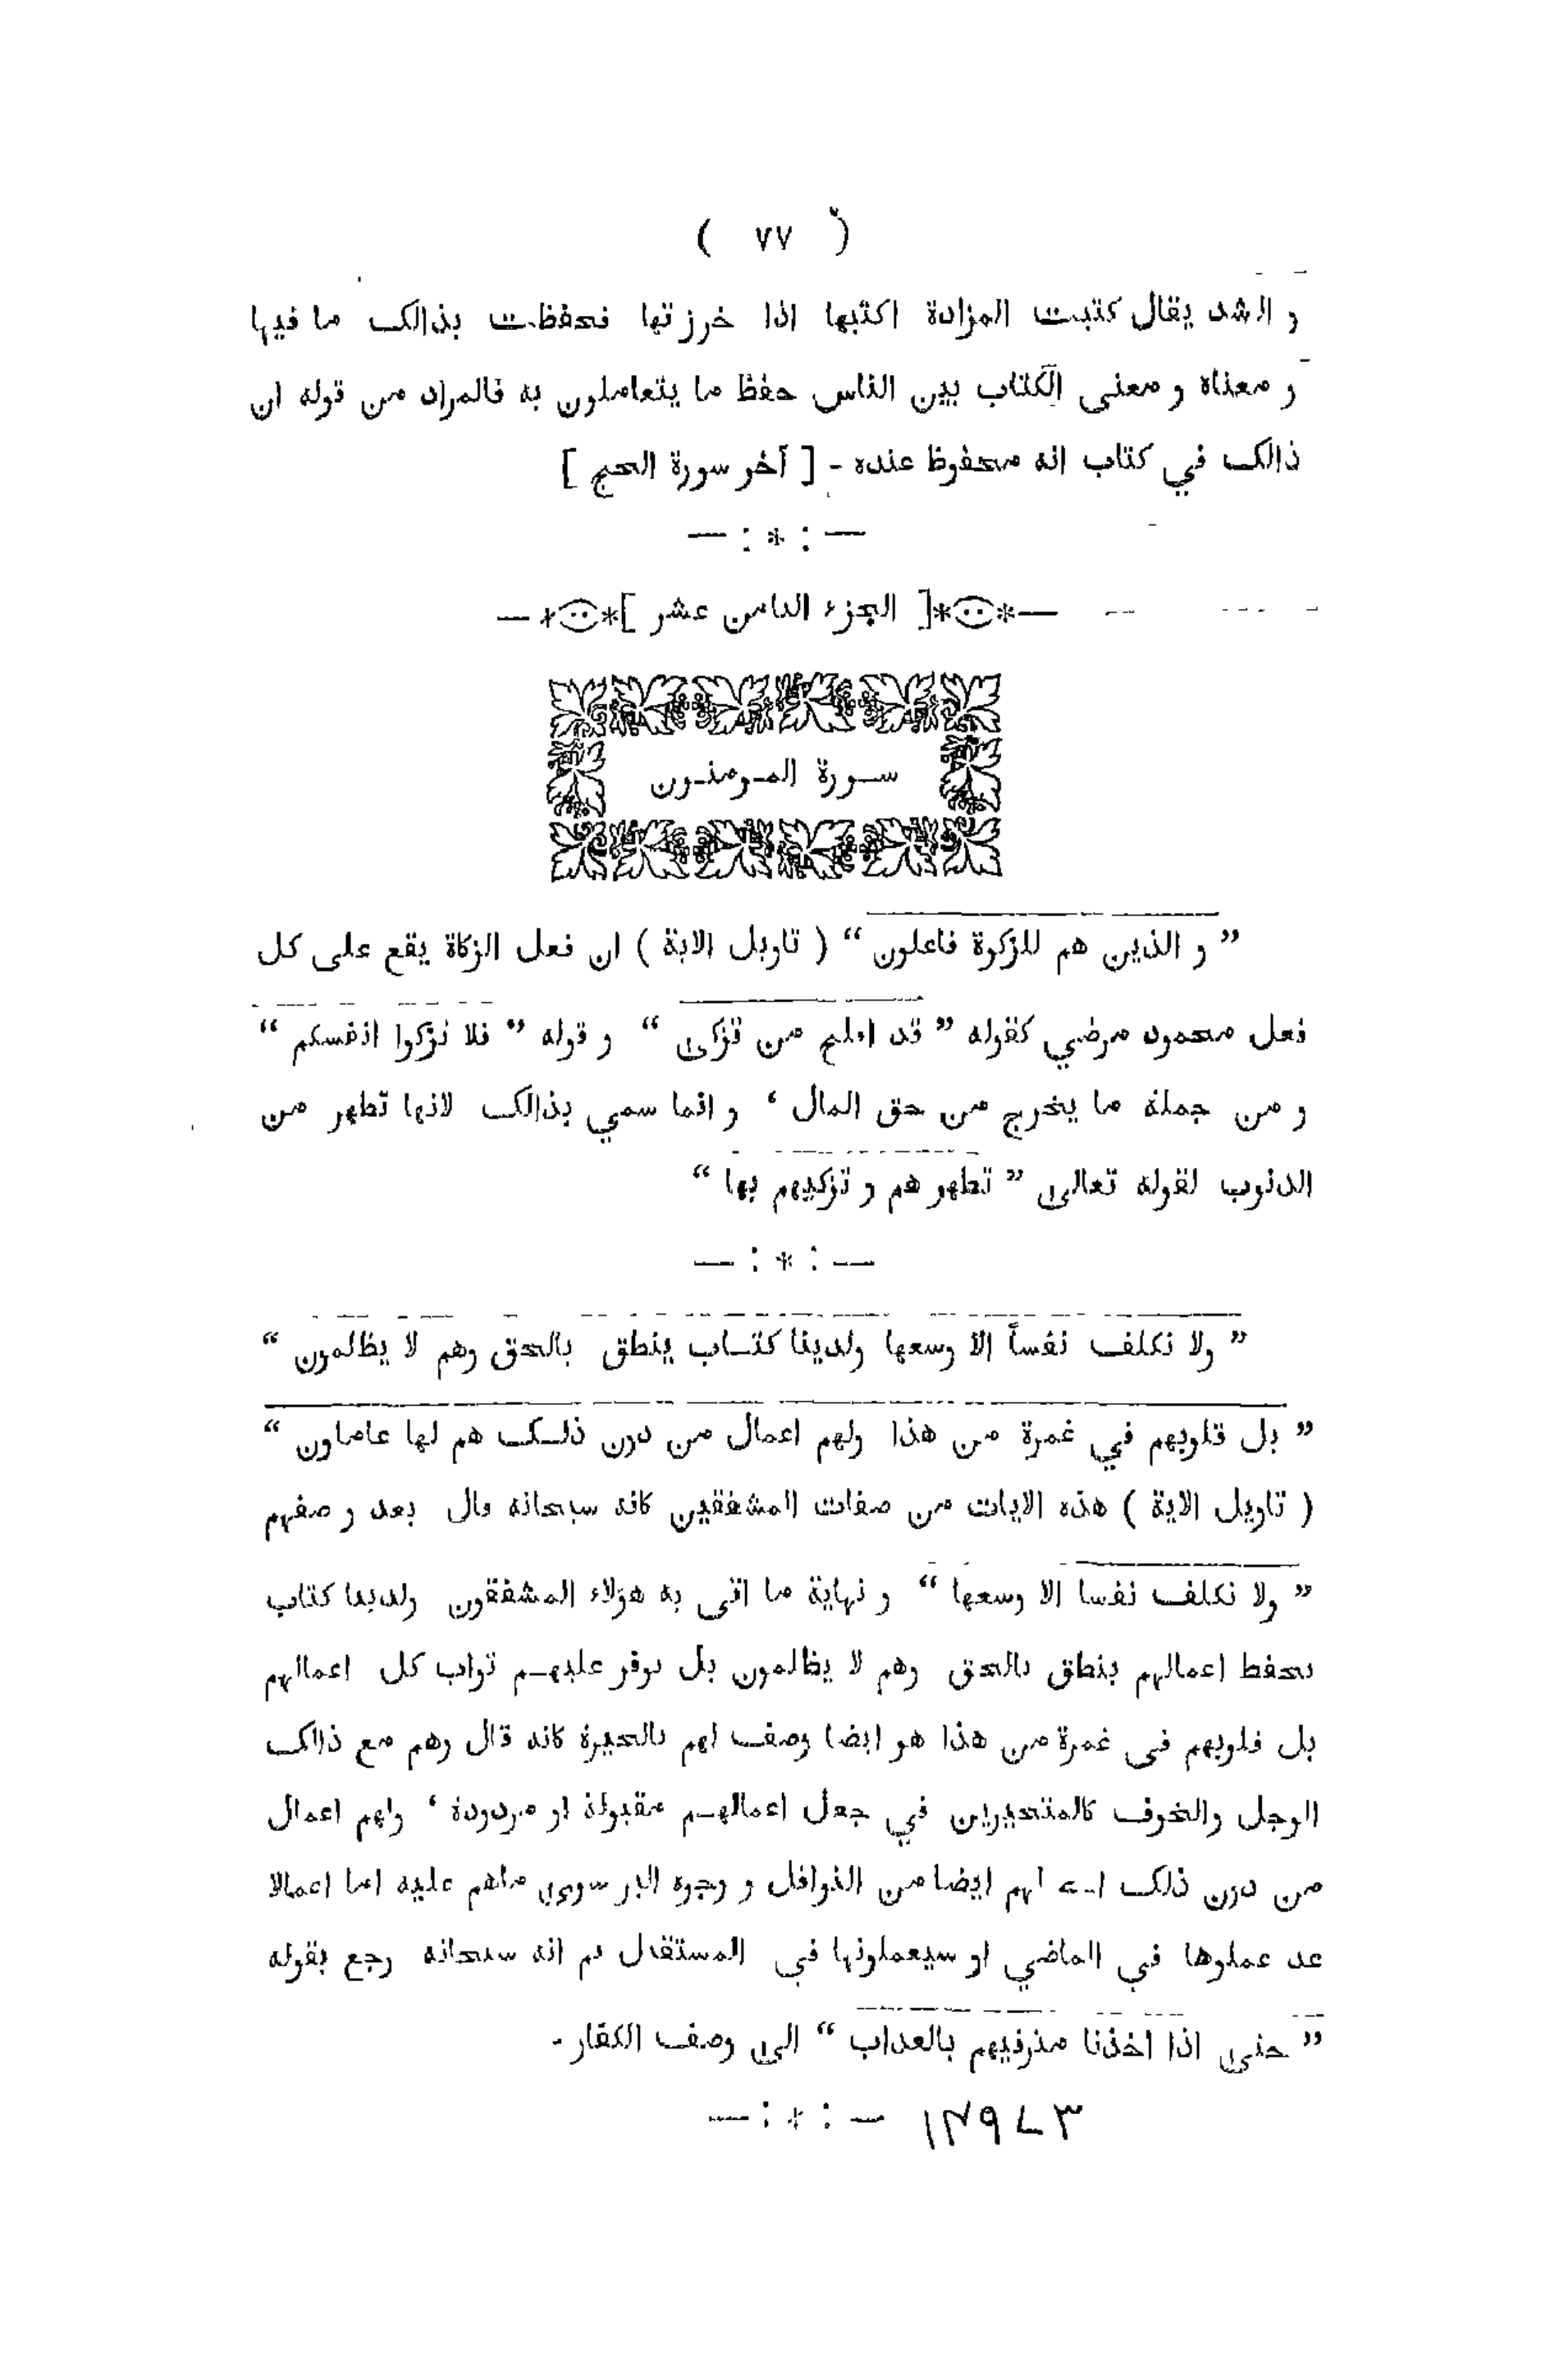 ( ٧٧ )
و الشد يقال كتبت المزادة اكتبها اذا خرزتها فحفظت بذالك ما فيها
و معناه و معنى الكتاب بين الناس حفظ ما يتعاملون به فالمراد من قوله ان
ذالك في كتاب انه محفوظ عنده - [ آخر سورة الحج ]
— : * : —
—*[ الجزء الثامن عشر ]*—
سـورة المـومنـون
” و الذين هم للزكوة فاعلون “ ( تاويل الاية ) ان فعل الزكاة يقع على كل
فعل محمود مرضي كقوله ” قد افلح من تزكى “ و قوله ” فلا تزكوا انفسكم “
و من جملة ما يخرج من حق المال ، و انما سمي بذالك لانها تطهر من
الذنوب لقوله تعالى ” تطهر هم و تزكيهم بها “
— : * : —
” ولا نكلف نفساً الا وسعها ولدينا كتـاب ينطق بالحق وهم لا يظالمون “
” بل قلوبهم في غمرة من هذا ولهم اعمال من دون ذلـك هم لها عاملون “
( تاويل الاية ) هذه الايات من صفات المشفقين كانه سبحانه قال بعد و صفهم
” ولا نكلف نفسا الا وسعها “ و نهاية ما اتى به هؤلاء المشفقون ولدينا كتاب
يحفظ اعمالهم ينطق بالحق وهم لا يظالمون بل نوفر عليهـم ثواب كل اعمالهم
بل قلوبهم فى غمرة من هذا هو ايضا وصف لهم بالحيرة كانه قال وهم مع ذالك
الوجل والخوف كالمتحيرين في جعل اعمالهـم مقبولة او مردودة ، ولهم اعمال
من دون ذلك اے لهم ايضا من النوافل و وجوه البر سوى ماهم عليه اما اعمالا
قد عملوها في الماضي او سيعملونها في المستقبل ثم انه سبحانه رجع بقوله
” حتى اذا اخذنا مترفيهم بالعذاب “ الى وصف الكفار -
— : * : —